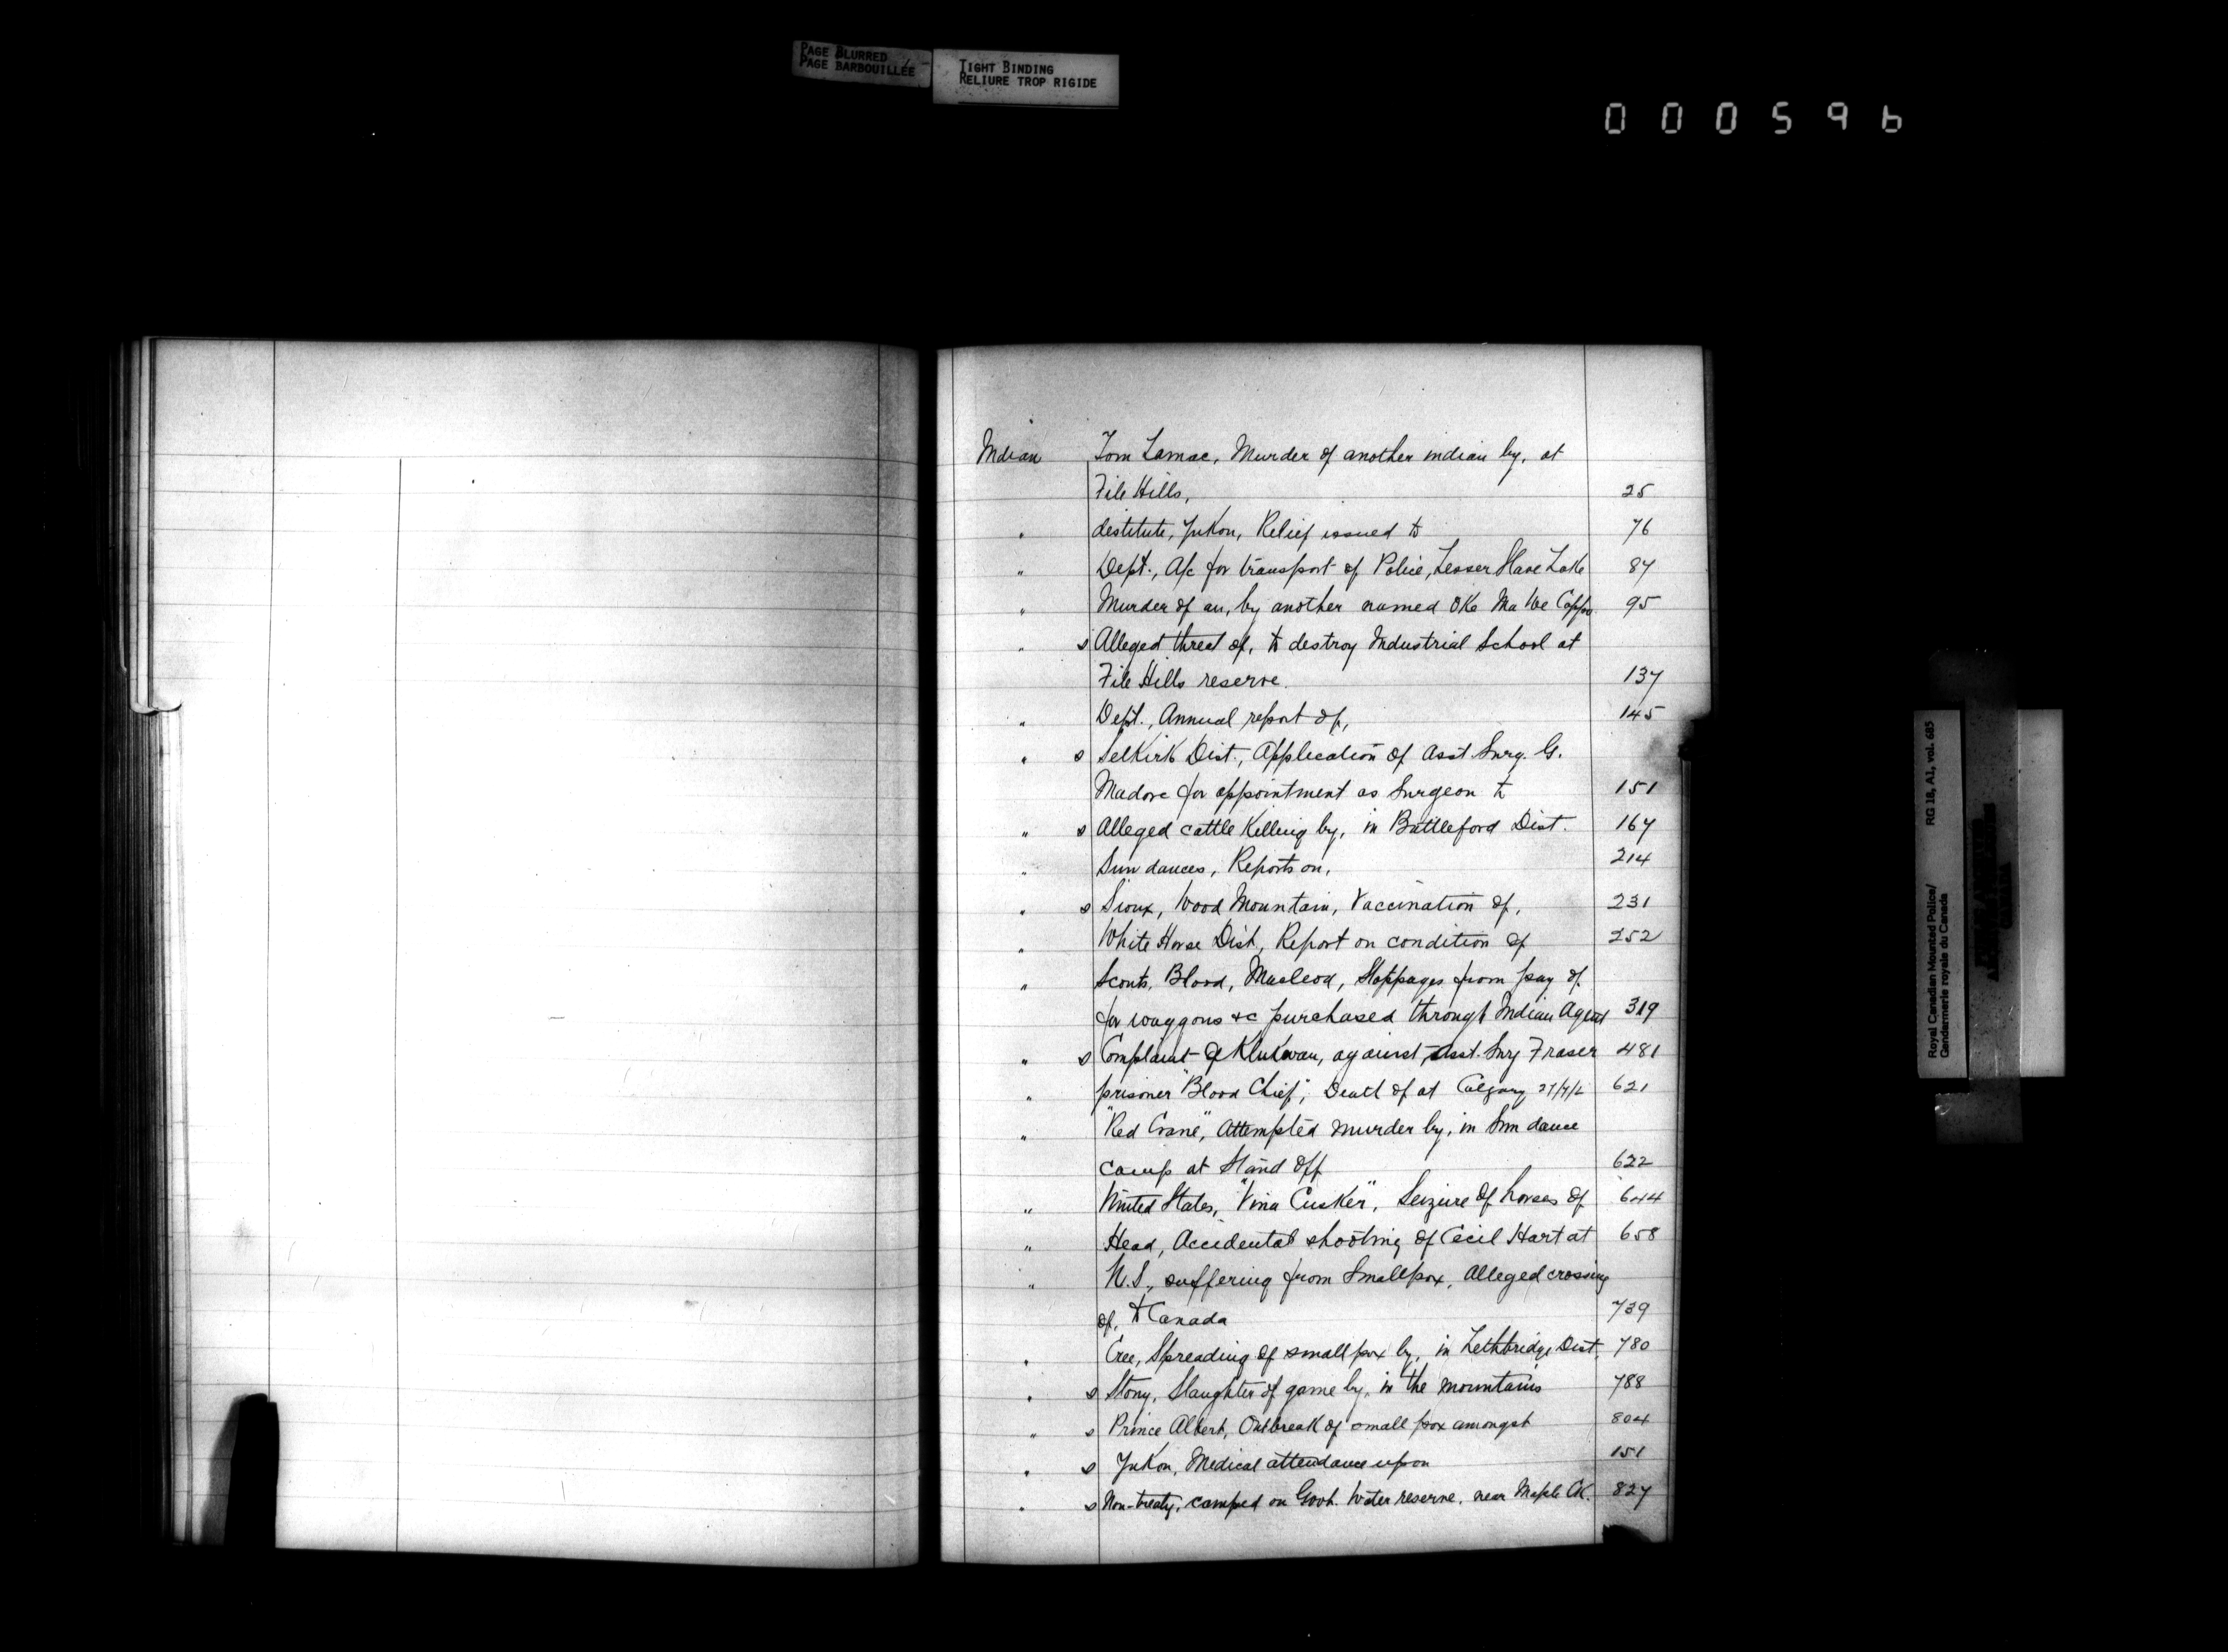 PAGE BLURRED
PAGE BARBOUILLÉE
TIGHT BINDING
RELIURE TROP RIGIDE
000596
Indian Tom Lamac, Murder of another indian by, at
File Hills, 25
" destitute, Yukon, Relief issued to 76
" Dept., A/c for transport of Police, Lesser Slave Lake 87
" Murder of an, by another named Oke Ma We 95
" s Alleged threat of, to destroy Industrial School at
File Hills reserve. 137
" Dept., Annual report of, 145
" s Selkirk Dist., Application of Asst. Surg. G.
Madore for appointment as Surgeon to 151
" s Alleged cattle Killing by, in Battleford Dist. 167
" Sun dances, Reports on, 214
" s Sioux, Wood Mountain, Vaccination of, 231
" White Horse Dist, Report on condition of 252
" Scouts, Blood, Macleod, Stoppages from pay of
for waggons &c purchased through Indian Agent 319
" s Complaint of Klukwan, against, Asst. Surg Fraser 481
" prisoner "Blood Chief", Death of at Calgary 621
" "Red Crane", Attempted murder by, in Sun dance
camp at Stand Off 622
" United States, "Vina Cusker", Seizure of horses of 644
" Head, Accidental shooting of Cecil Hart at 658
" U.S., suffering from Smallpox, Alleged crossing
of, to Canada 739
" Cree, Spreading of smallpox by, in Lethbridge Dist. 780
" s Stony, Slaughter of game by, in the mountains 788
" s Prince Albert, Outbreak of small pox amongst 804
" s Yukon, Medical attendance upon 151
" s Non-treaty, camped on Govt. Water reserve, near Maple Ck. 827
Royal Canadian Mounted Police/ RG 18, A1, vol. 685
Gendarmerie royale du Canada